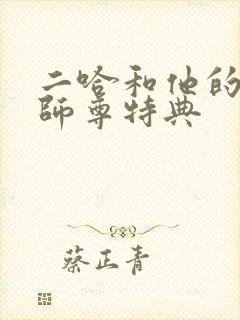 二哈和他的
師尊特典
蔡正青